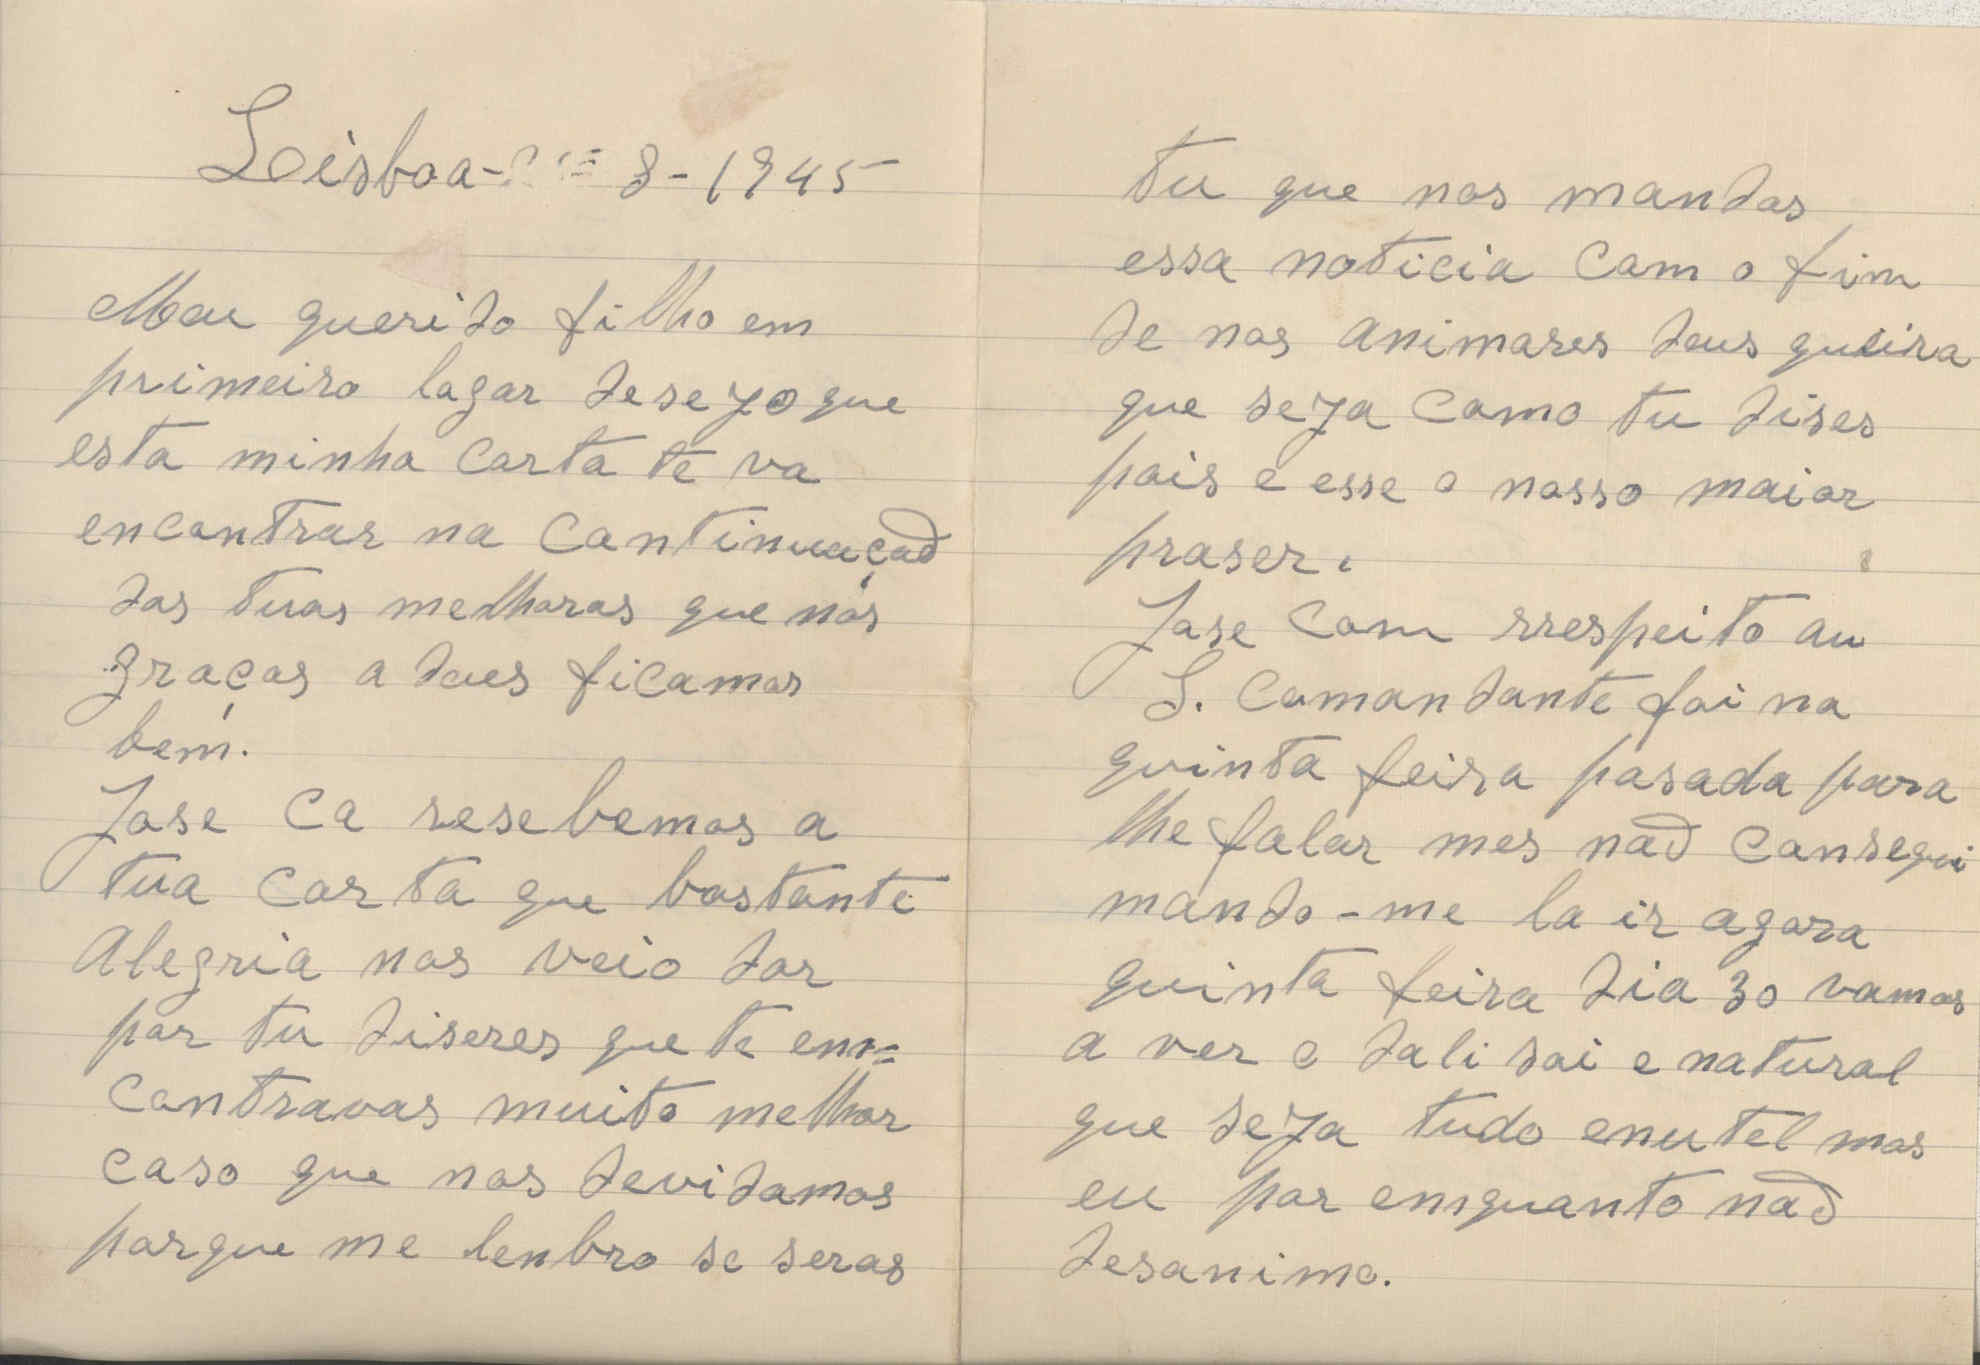 Leisboa- 8-1945
Meu querido filho em
primeiro lagar desejo que
esta minha carta te va
encontrar na continuação
das tuas melhoras que nós
graças a deus ficamos
bem.
Jose ca resebemos a
tua carta que bastante
Alegria nos veio dar
por tu diseres que te em=
contravas muito melhor
caso que nos devidamos
porque me lenbro se seras
tu que nos mandas
essa noticia com o fim
de nos animares deus queira
que seja como tu dises
pois e esse o nosso maior
praser.
Jose com rrespeito au
S. Comandante foi na
quinta feira pasada para
lhe falar mes não consegui
mando-me la ir agora
quinta feira dia 30 vamos
a ver o dali sai e natural
que seja tudo enutel mas
eu por emquanto não
desanimo.